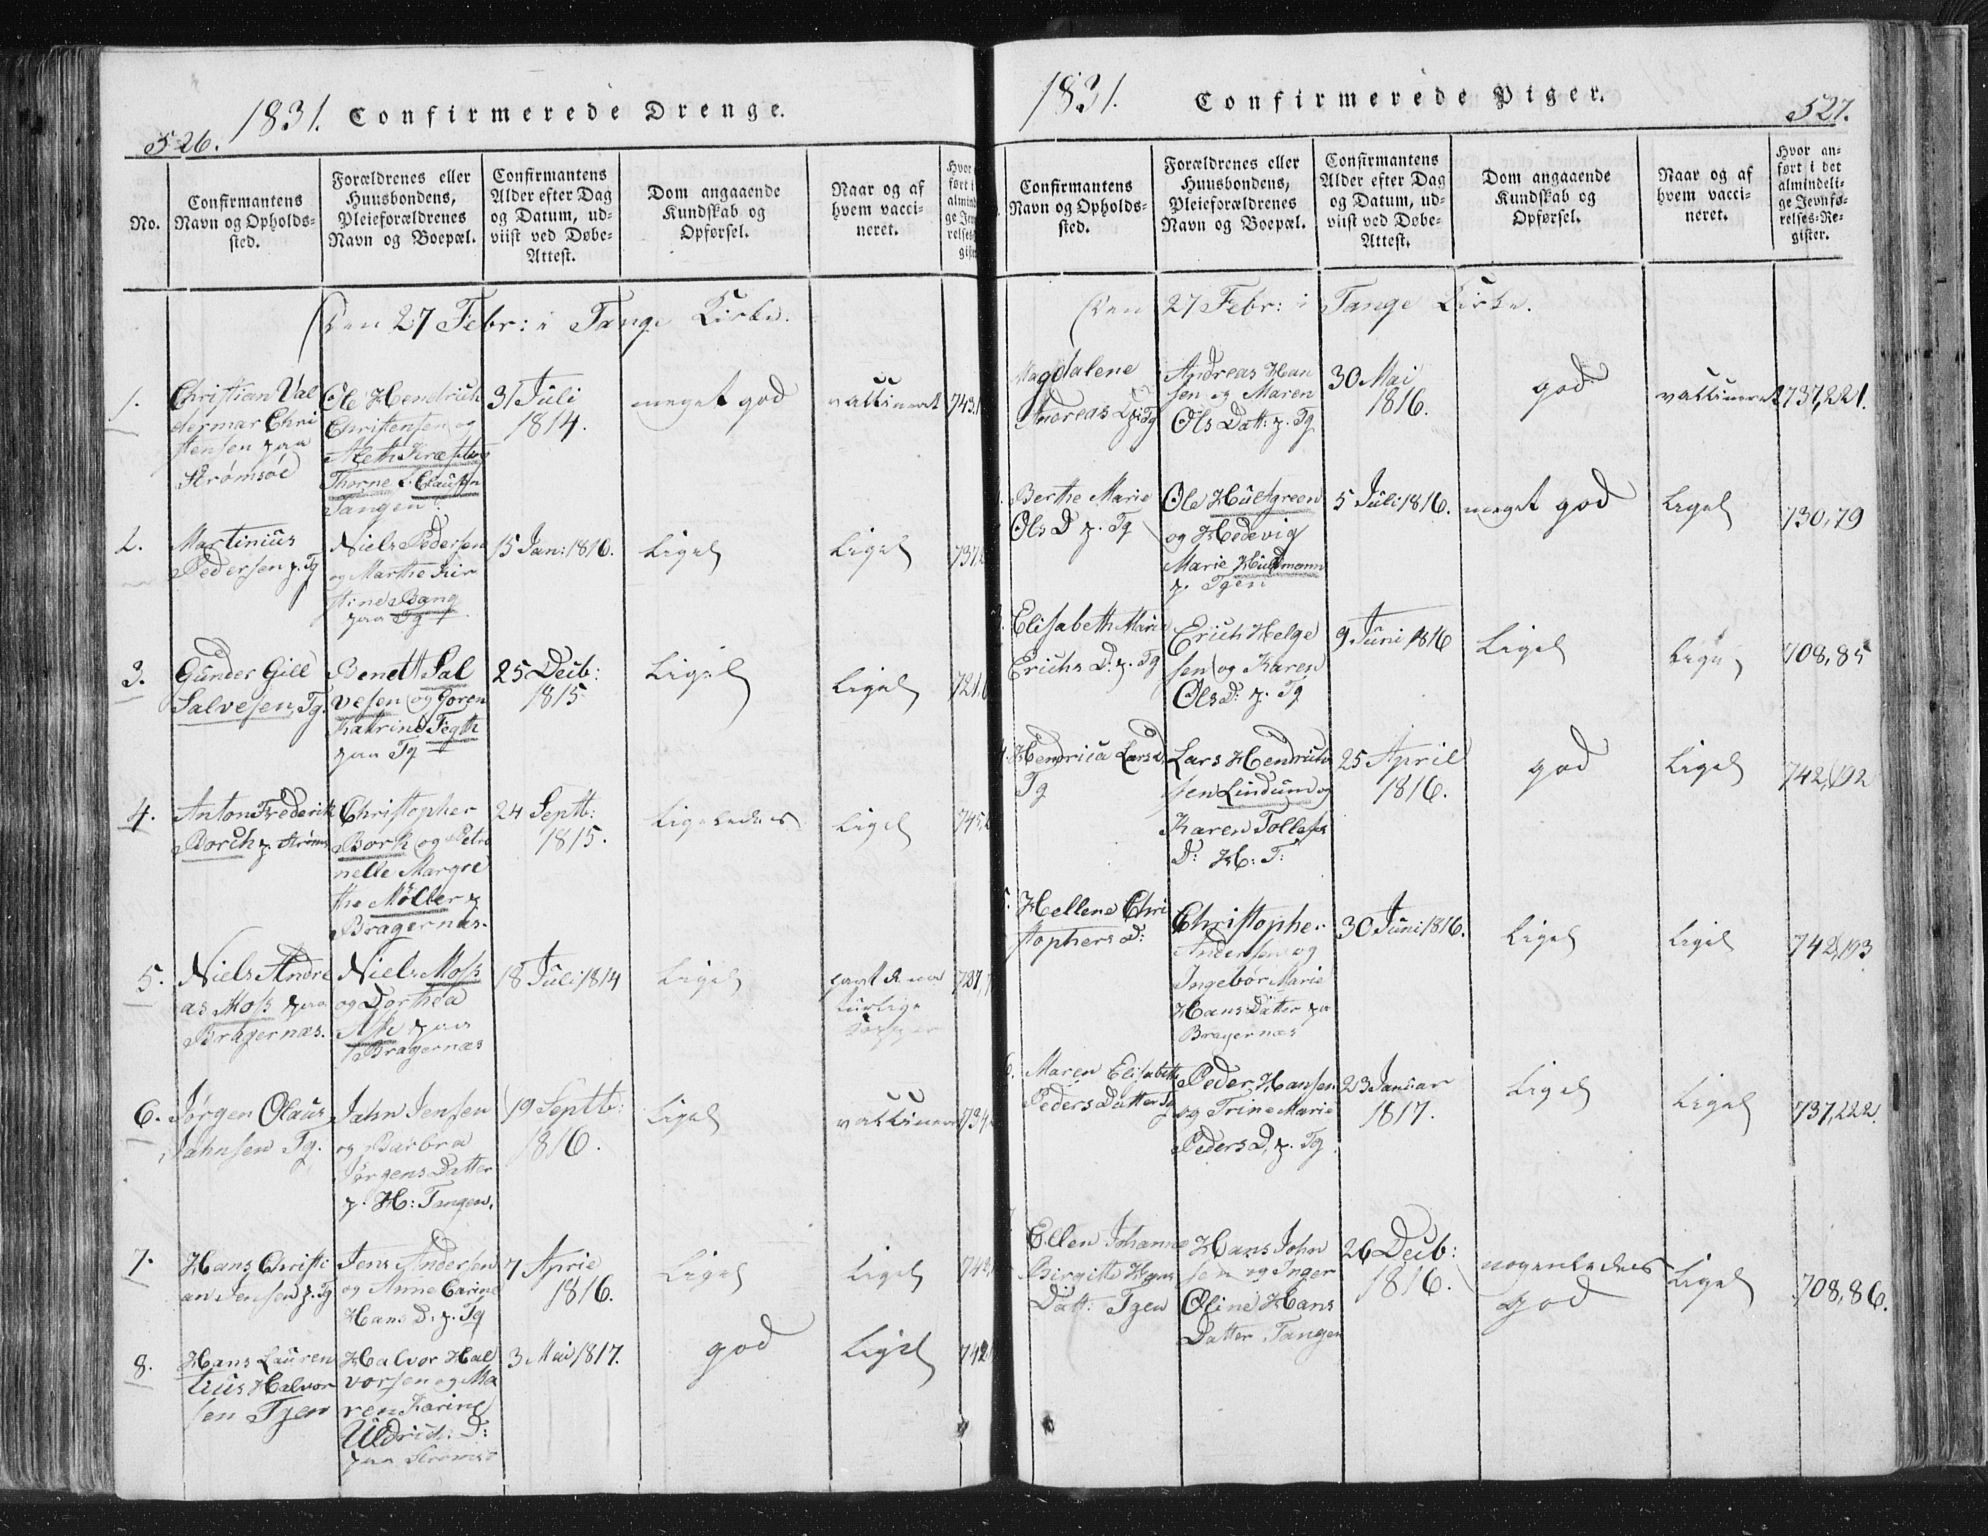 526.
1831. Confirmerede Drenge.
No.
Confirmantens
Navn og Opholds-
sted.
Forældrenes eller
Huusbondens,
Pleieforældrenes
Navn og Boepæl.
Confirmantens
Alder efter Dag
og Datum, ud-
viist ved Døbe-
Attest.
Dom angaaende
Kundskab og
Opførsel.
Naar og af
hvem vacci-
neret.
Den 27 Febr: i Tange Kirke.
1.
Christian Val
demar Chri
stensen paa
Strømsøe
Ole Hendrich
Christensen og
Thorne
Tangen
31 Juli
1814.
meget god
vaccineret
2.
Martinius
Pedersen p. Tg
Niels Pedersen
og Marthe Kir
stine Bang
paa Tg
15 Jan: 1816.
Ligel
Ligel
3.
Gunder Gill
Salvesen, Tg.
Benett Sal
vesen og Goren
Katrine Fegth
paa Tg
25 Decb:
1815
Ligel
Ligel
4.
Anton Frederik
Borch p. Strøms
Christopher
Bork og Petro
nelle Margre
the Möller p
Bragernæs.
24 Septb:
1815.
Ligeledes
Ligel
5.
Niels Andre
as Moss paa
Bragernæs.
Niels Moss
og Dorthea
Ask paa
Bragernæs
18 Juli 1814
Ligel
havt de na
turlige
Kopper
6.
Jørgen Olaus
Jahnsen Tg.
Jahn Jensen
og Barbra
Jørgens Datter
p. H: Tangen.
19 Septb:
1816.
Ligel
vaccineret
7.
Hans Christi
an Jensen p. Tg
Jens Andersen
og Anne Carine
Hans D. p. Tg
7 April
1816.
Ligel
Ligel
8.
Hans Lauren
tius Halvor
sen Tgen
Halvor Hal
vorsen og Ma
ren Karine
Uldrich: D:
paa Strømsø
3 Mai 1817.
god
Ligel
1831. Confirmerede Piger.
527.
Confirmantens
Navn og Opholds-
sted.
Forældrenes eller
Huusbondens,
Pleieforældrenes
Navn og Boepæl.
Confirmantens
Alder efter Dag
og Datum, ud-
viist ved Døbe-
Attest.
Dom angaaende
Kundskab og
Opførsel.
Naar og af
hvem vacci-
neret.
Hvor an-
ført i det
almindeli-
ge Jevnfø-
relses-Re-
gister.
Den 27 Febr: i Tange Kirke.
Magdalene
Andreas D. p. Tg
Andreas Han
sen og Maren
Ols Datt: p. Tg
30 Mai
1816.
god
vaccineret
737,221.
Berthe Marie
Ols D p. Tg
Ole Hultgreen
og Hedevig
Marie
p. Tgen
5 Juli 1816.
meget god
Ligel
730,79
Elisabeth Marie
Erichs D. p. Tg
Erich Helge
sen og Karen
Ols D: p. Tg
9 Juni 1816
Ligel
Ligel
708,85
Hendrica Lars D
Tg
Lars Hendrich
sen Lindum og
Karen Tollefs
D: H: T:
25 April
1816.
god
Ligel
742,192
Hellene Chri
stophers D:
Christopher
Andersen og
Ingebor Marie
Hans Datter paa
Bragernæs
30 Juni 1816.
Ligel
Ligel
742,193
6.
Maren Elisabeth
Peders Datter Tg
Peder Hansen
og Trine Marie
Peders D. p. Tg
23 Januar
1817.
Ligel
Ligel
737,222.
Ellen Johanne
Birgitte Hans
Datt: Tgen
Hans John
sen og Inger
Oline Hans
Datter Tangen
26 Decb:
1816.
nogenledes
god
Ligel
708,86.